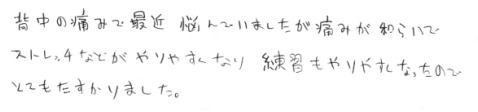 背中の痛みで最近 悩んでいましたが痛みが和らいで
ストレッチなどがやりやすくなり 練習もやりやすくなったので
とてもたすかりました。